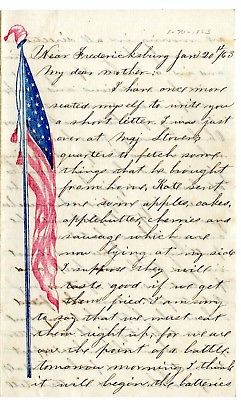 1-20-1863
Near Fredericksburg Jan 20th/63
My dear mother:
I have once more
seated myself to write you
a short letter. I was just
over at Maj Stovers
quarters to fetch some
things that he brought
from home, Kate sent
me some apples, cakes,
applebutter, cherries and
sausage which are
now lying at my side
I suppose they will
taste good if we get
them fried. I am sorry
to say that we must eat
them right up, for we are
on the point of a battle.
tomorrow morning, I think
it will begin, the batteries